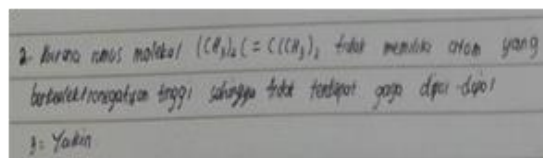 2. Karena rumus molekul (CH₃)₂C=C(CH₃)₂ tidak memiliki atom yang
berkeelektronegatifan tinggi sehingga tidak terdapat gaya dipol-dipol
3: Yakin